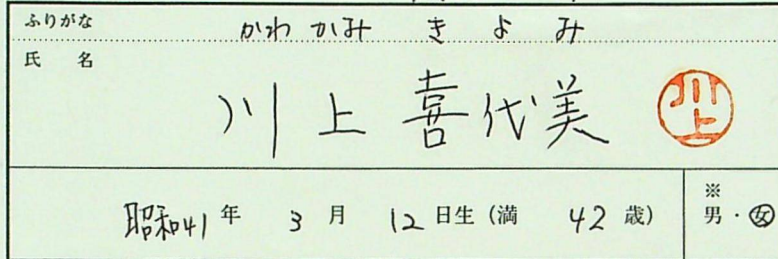 ふりがな かわ かみ き よ み
氏 名 川上 喜代美 川上
昭和41年 3月 12日生 (満 42歳) ※ 男・女